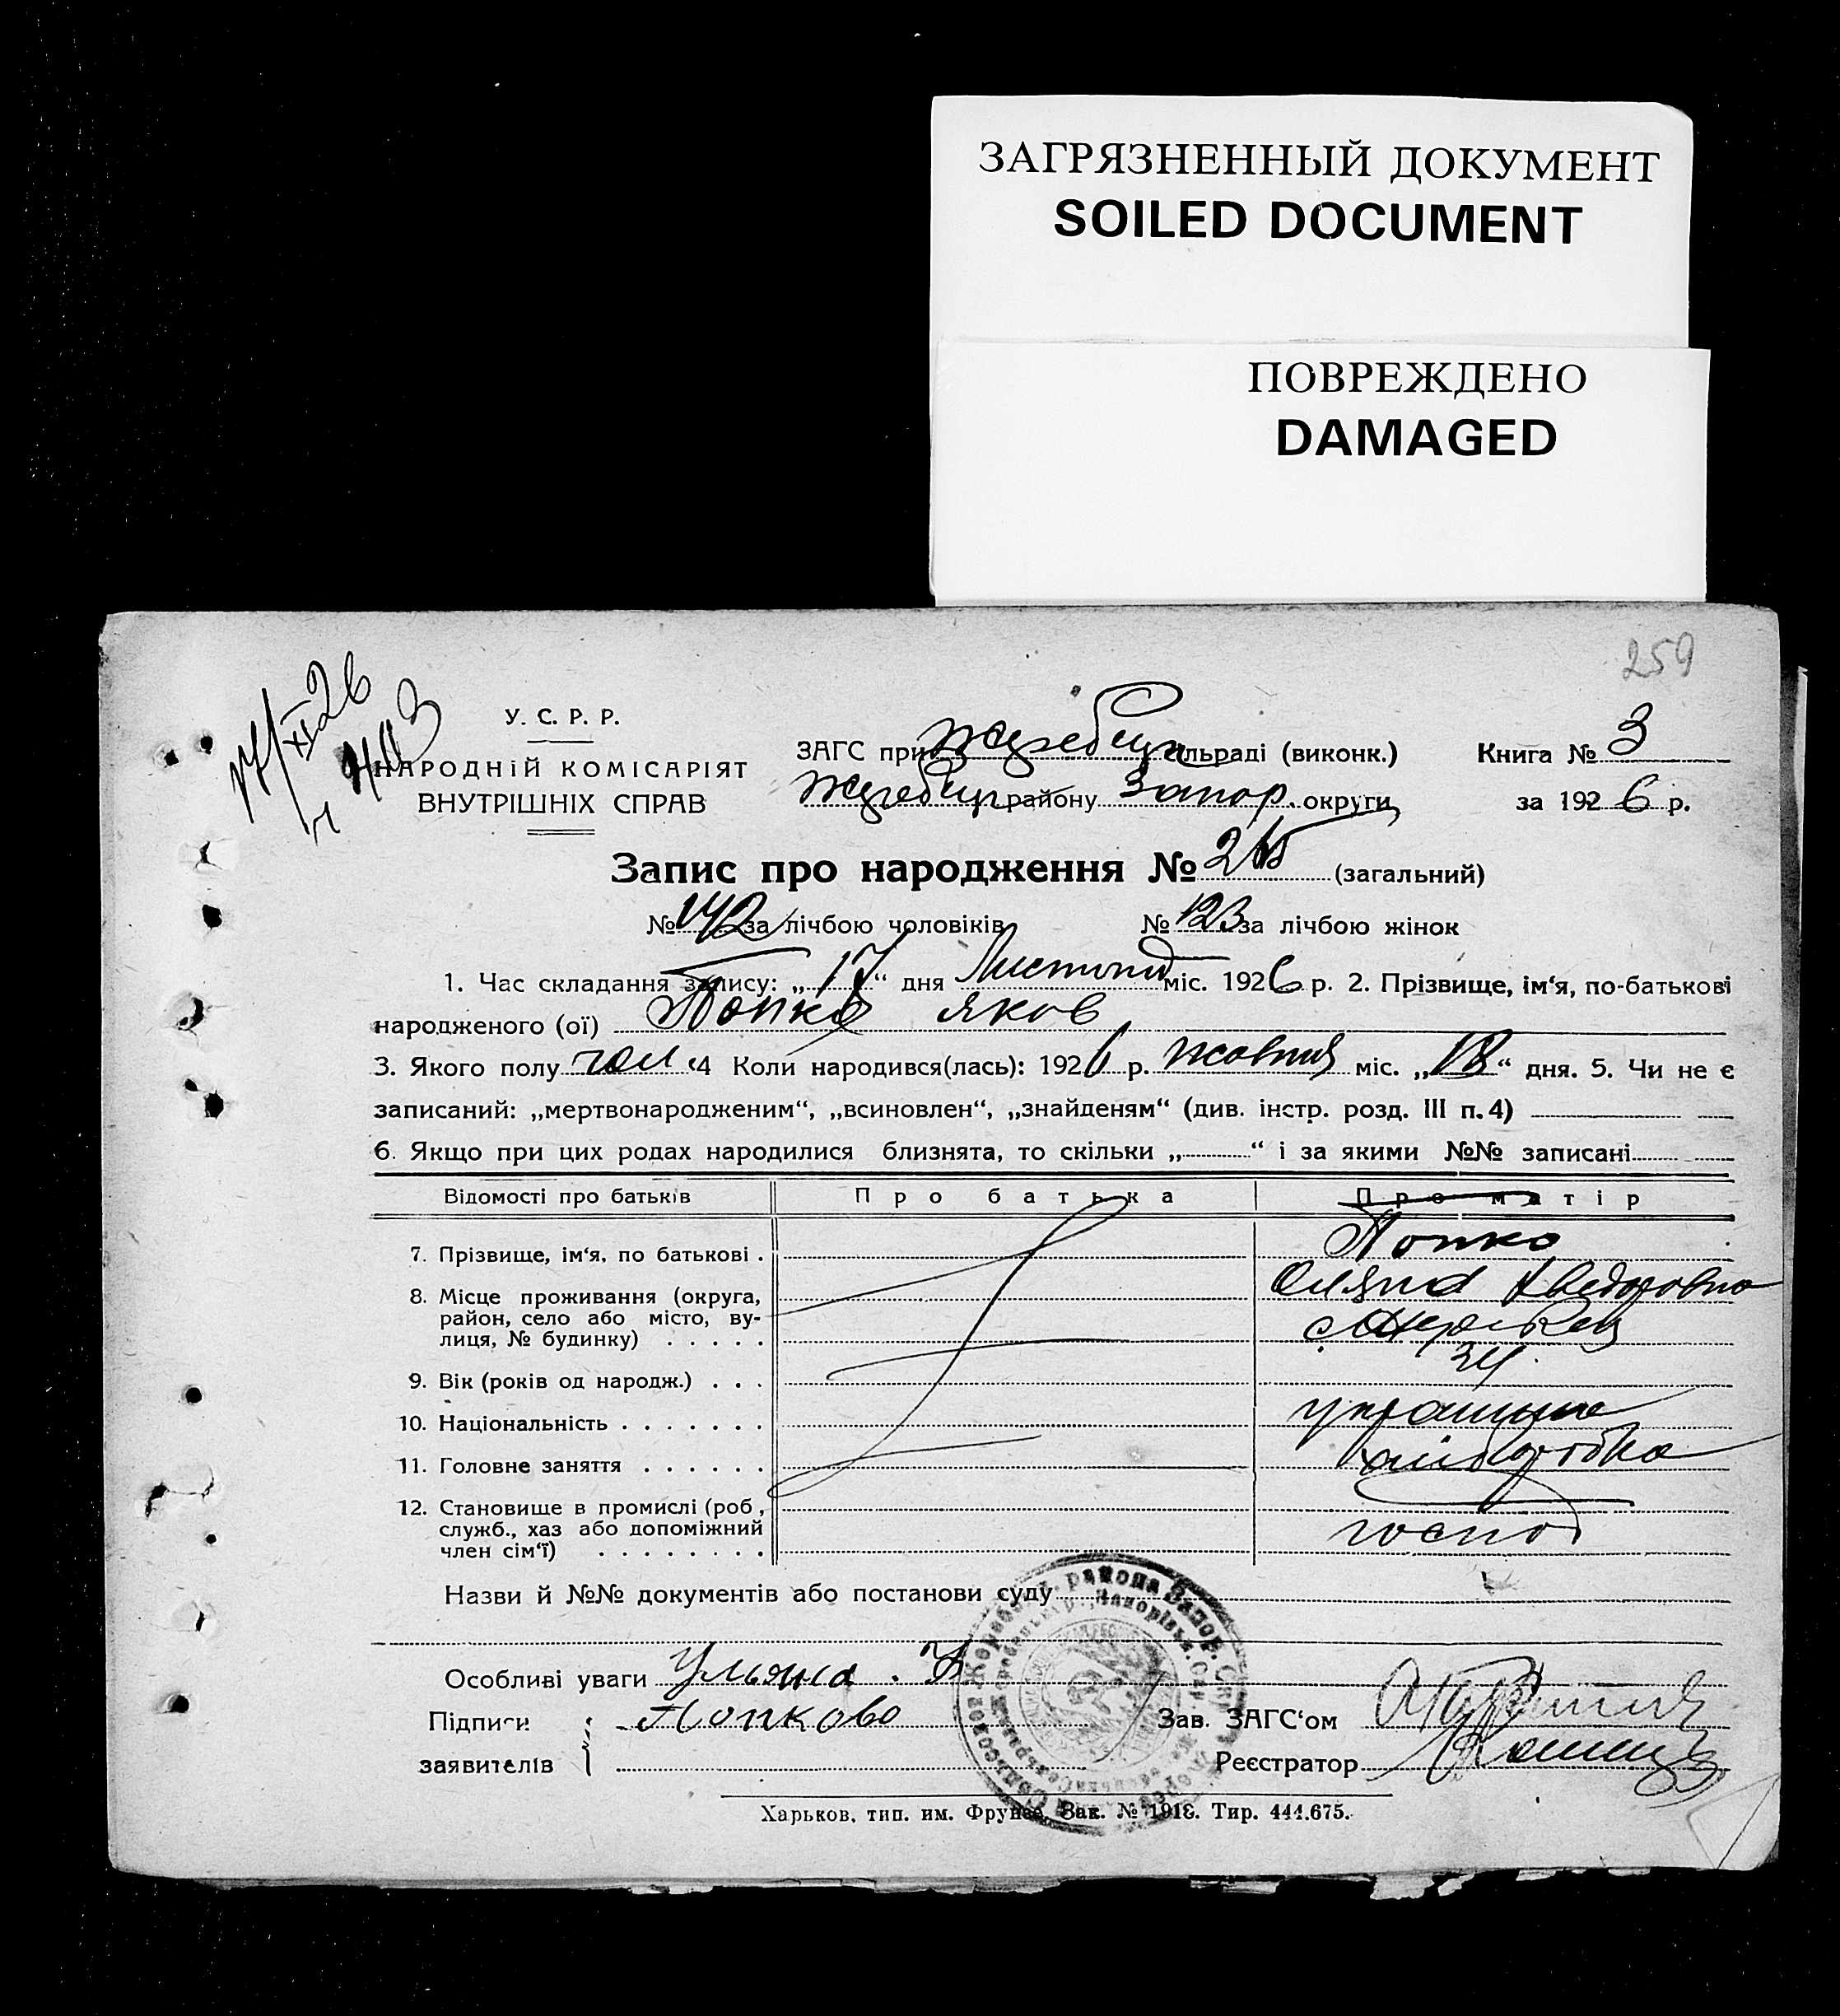 ЗАГРЯЗНЕННЫЙ ДОКУМЕНТ
SOILED DOCUMENT
ПОВРЕЖДЕНО
DAMAGED
259
У. С. Р. Р.
НАРОДНІЙ КОМІСАРІЯТ
ВНУТРІШНІХ СПРАВ
ЗАГС при Жеребец. сільраді (виконк.)
Книга № 3
Жеребец. району Запор. округи
за 1926 р.
Запис про народження № (загальний)
№ 142 за лічбою чоловіків № 123 за лічбою жінок
1. Час складання запису: „17“ дня Листопад міс. 1926 р. 2. Прізвище, ім‘я, по-батькові
народженого (ої) Попко Яков
3. Якого полу чол 4 Коли народився(лась): 1926 р. жовтня міс. „18“ дня. 5. Чи не є
записаний: „мертвонародженим“, „всиновлен“, „знайденям“ (див. інстр. розд. III п. 4)
6. Якщо при цих родах народилися близнята, то скільки „ “ і за якими №№ записані
Відомості про батьків Про батька Про матір
7. Прізвище, ім‘я, по батькові . Попко
8. Місце проживання (округа,
район, село або місто, ву-
лиця, № будинку) . . . . .
9. Вік (років од народж.) . . . 34
10. Національність . . . . . . . українка
11. Головне заняття . . . . . . хліборобка
12. Становище в промислі (роб.,
служб., хаз або допоміжний
член сім‘ї) . . . . . . . . господ
Назви й №№ документів або постанови суду
Особливі уваги Ульяна
Підписи Попково
заявителів
Зав. ЗАГС‘ом
Реєстратор
Харьков, тип. им. Фрунзе. Зак. № 1918. Тир. 444.675.